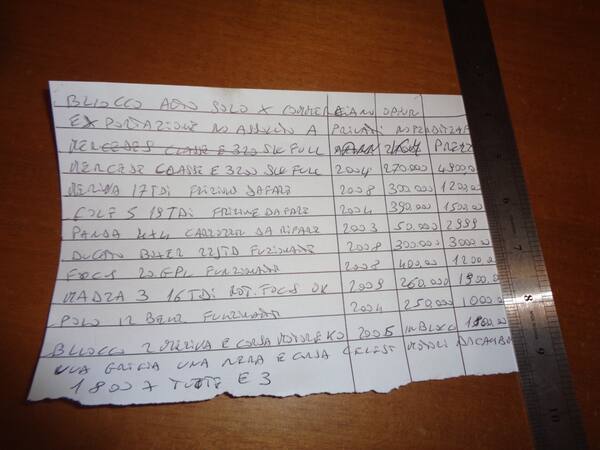 BLIOCCO AUTO SOLO X COMMERCIANO OPUR
EXPORTAZIONE NO ASSOLUTO A PRIVATI NO PERDITEMP
MERCEDES CLASSE E 320 SW FULL ANNI KM PREZZ
MERCEDE CLASSE E 320 SW FULL 2004 270.000 4900,00
MERIVA 17 TDI FRIZIONE DA FARE 2008 300.000 1200,00
GOLF 5 19 TDI FRIZIONE DA FARE 2004 390.000 1500,00
PANDA 4X4 CARROZZER DA RIPARE 2003 50.000 2999
DUCATO BOXER 22 JTD FUNZIONANTE 2008 300.000 3000,0
FOCUS 20 GPL FUNZIONANT 2008 400.00 1200,0
MADZA 3 16 TDI MOT. FOCUS OK 2009 260.000 1900,0
POLO 12 BENZ FUNZIONANT 2004 250.000 1000,0
BLIOCCO 2 MERIVA E CORSA MOTORE KO 2005 IN BLOCO 1800,0
UNA GRIGIA UNA NERA E CORSA CELEST MOTORI DA CAMBI
1800 X TUTTE E 3
6 7 8 9 10